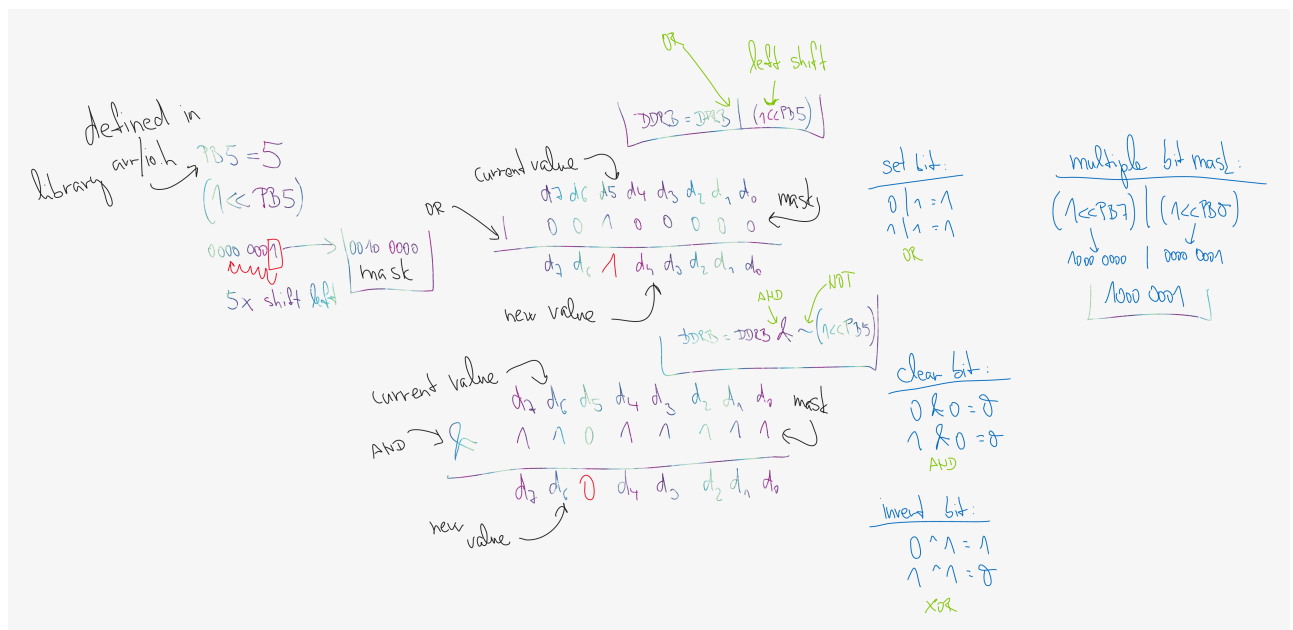 defined in
library avr/io.h
PB5 = 5
(1<<PB5)
0000 0001
0010 0000
mask
5x shift left
OR
left shift
DDRB = DDRB | (1<<PB5)
current value
d7 d6 d5 d4 d3 d2 d1 d0
OR
| 0 0 1 0 0 0 0 0
mask
d7 d6 1 d4 d3 d2 d1 d0
new value
AND
NOT
DDRB = DDRB & ~(1<<PB5)
current value
d7 d6 d5 d4 d3 d2 d1 d0
mask
AND
& 1 1 0 1 1 1 1 1
d7 d6 0 d4 d3 d2 d1 d0
new
value
set bit:
0 | 1 = 1
1 | 1 = 1
OR
clear bit:
0 & 0 = 0
1 & 0 = 0
AND
invert bit:
0 ^ 1 = 1
1 ^ 1 = 0
XOR
multiple bit mask:
(1<<PB7) | (1<<PB0)
1000 0000 | 0000 0001
1000 0001